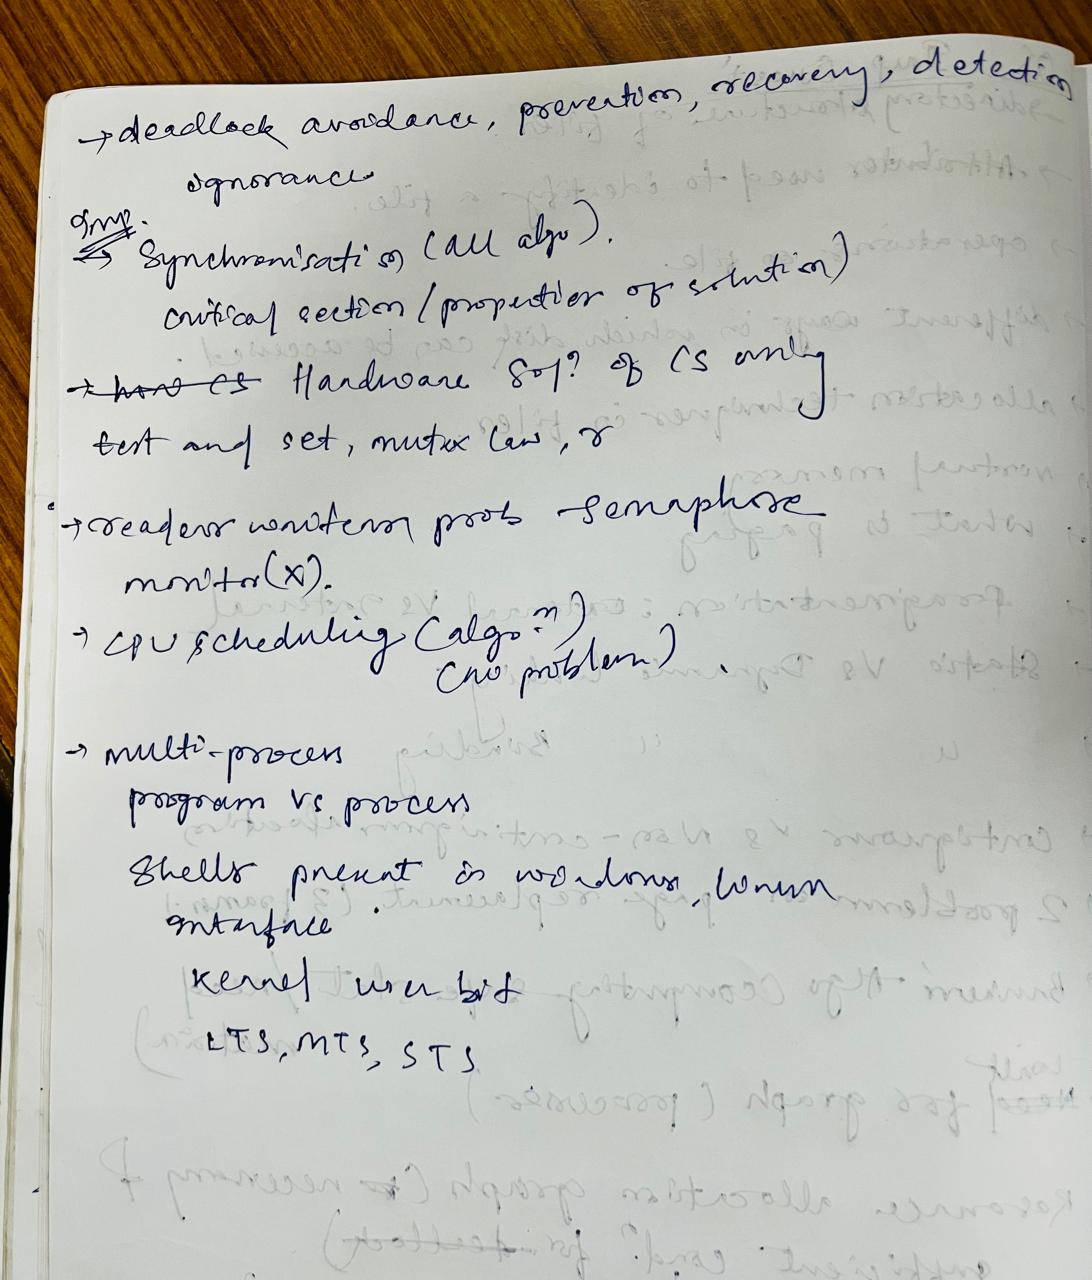 → deadlock avoidance, prevention, recovery, detection
ignorance
Imp.
→ Synchronisation (all algo).
critical section / properties of solution)
→ how CS Hardware Solⁿ of CS using
test and set, mutex law, r
→ readers writers prob semaphore
monitor(x).
→ CPU scheduling (algoⁿ)
(no problem).
→ multi-process
program vs process
Shells present in windows,
interface
Kernel user bit
LTS, MTS, STS